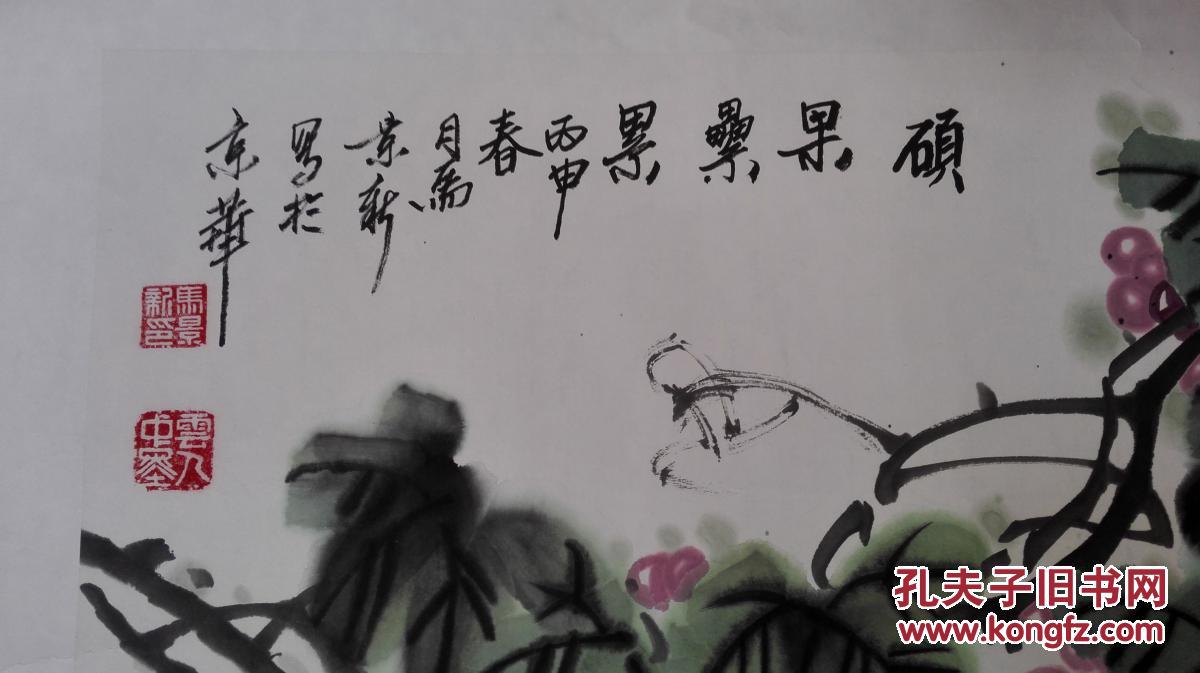 碩果纍累
丙申
春
月馬
景新
写於
京華
馬景
新印
雲人
中
孔夫子旧书网
www.kongfz.com